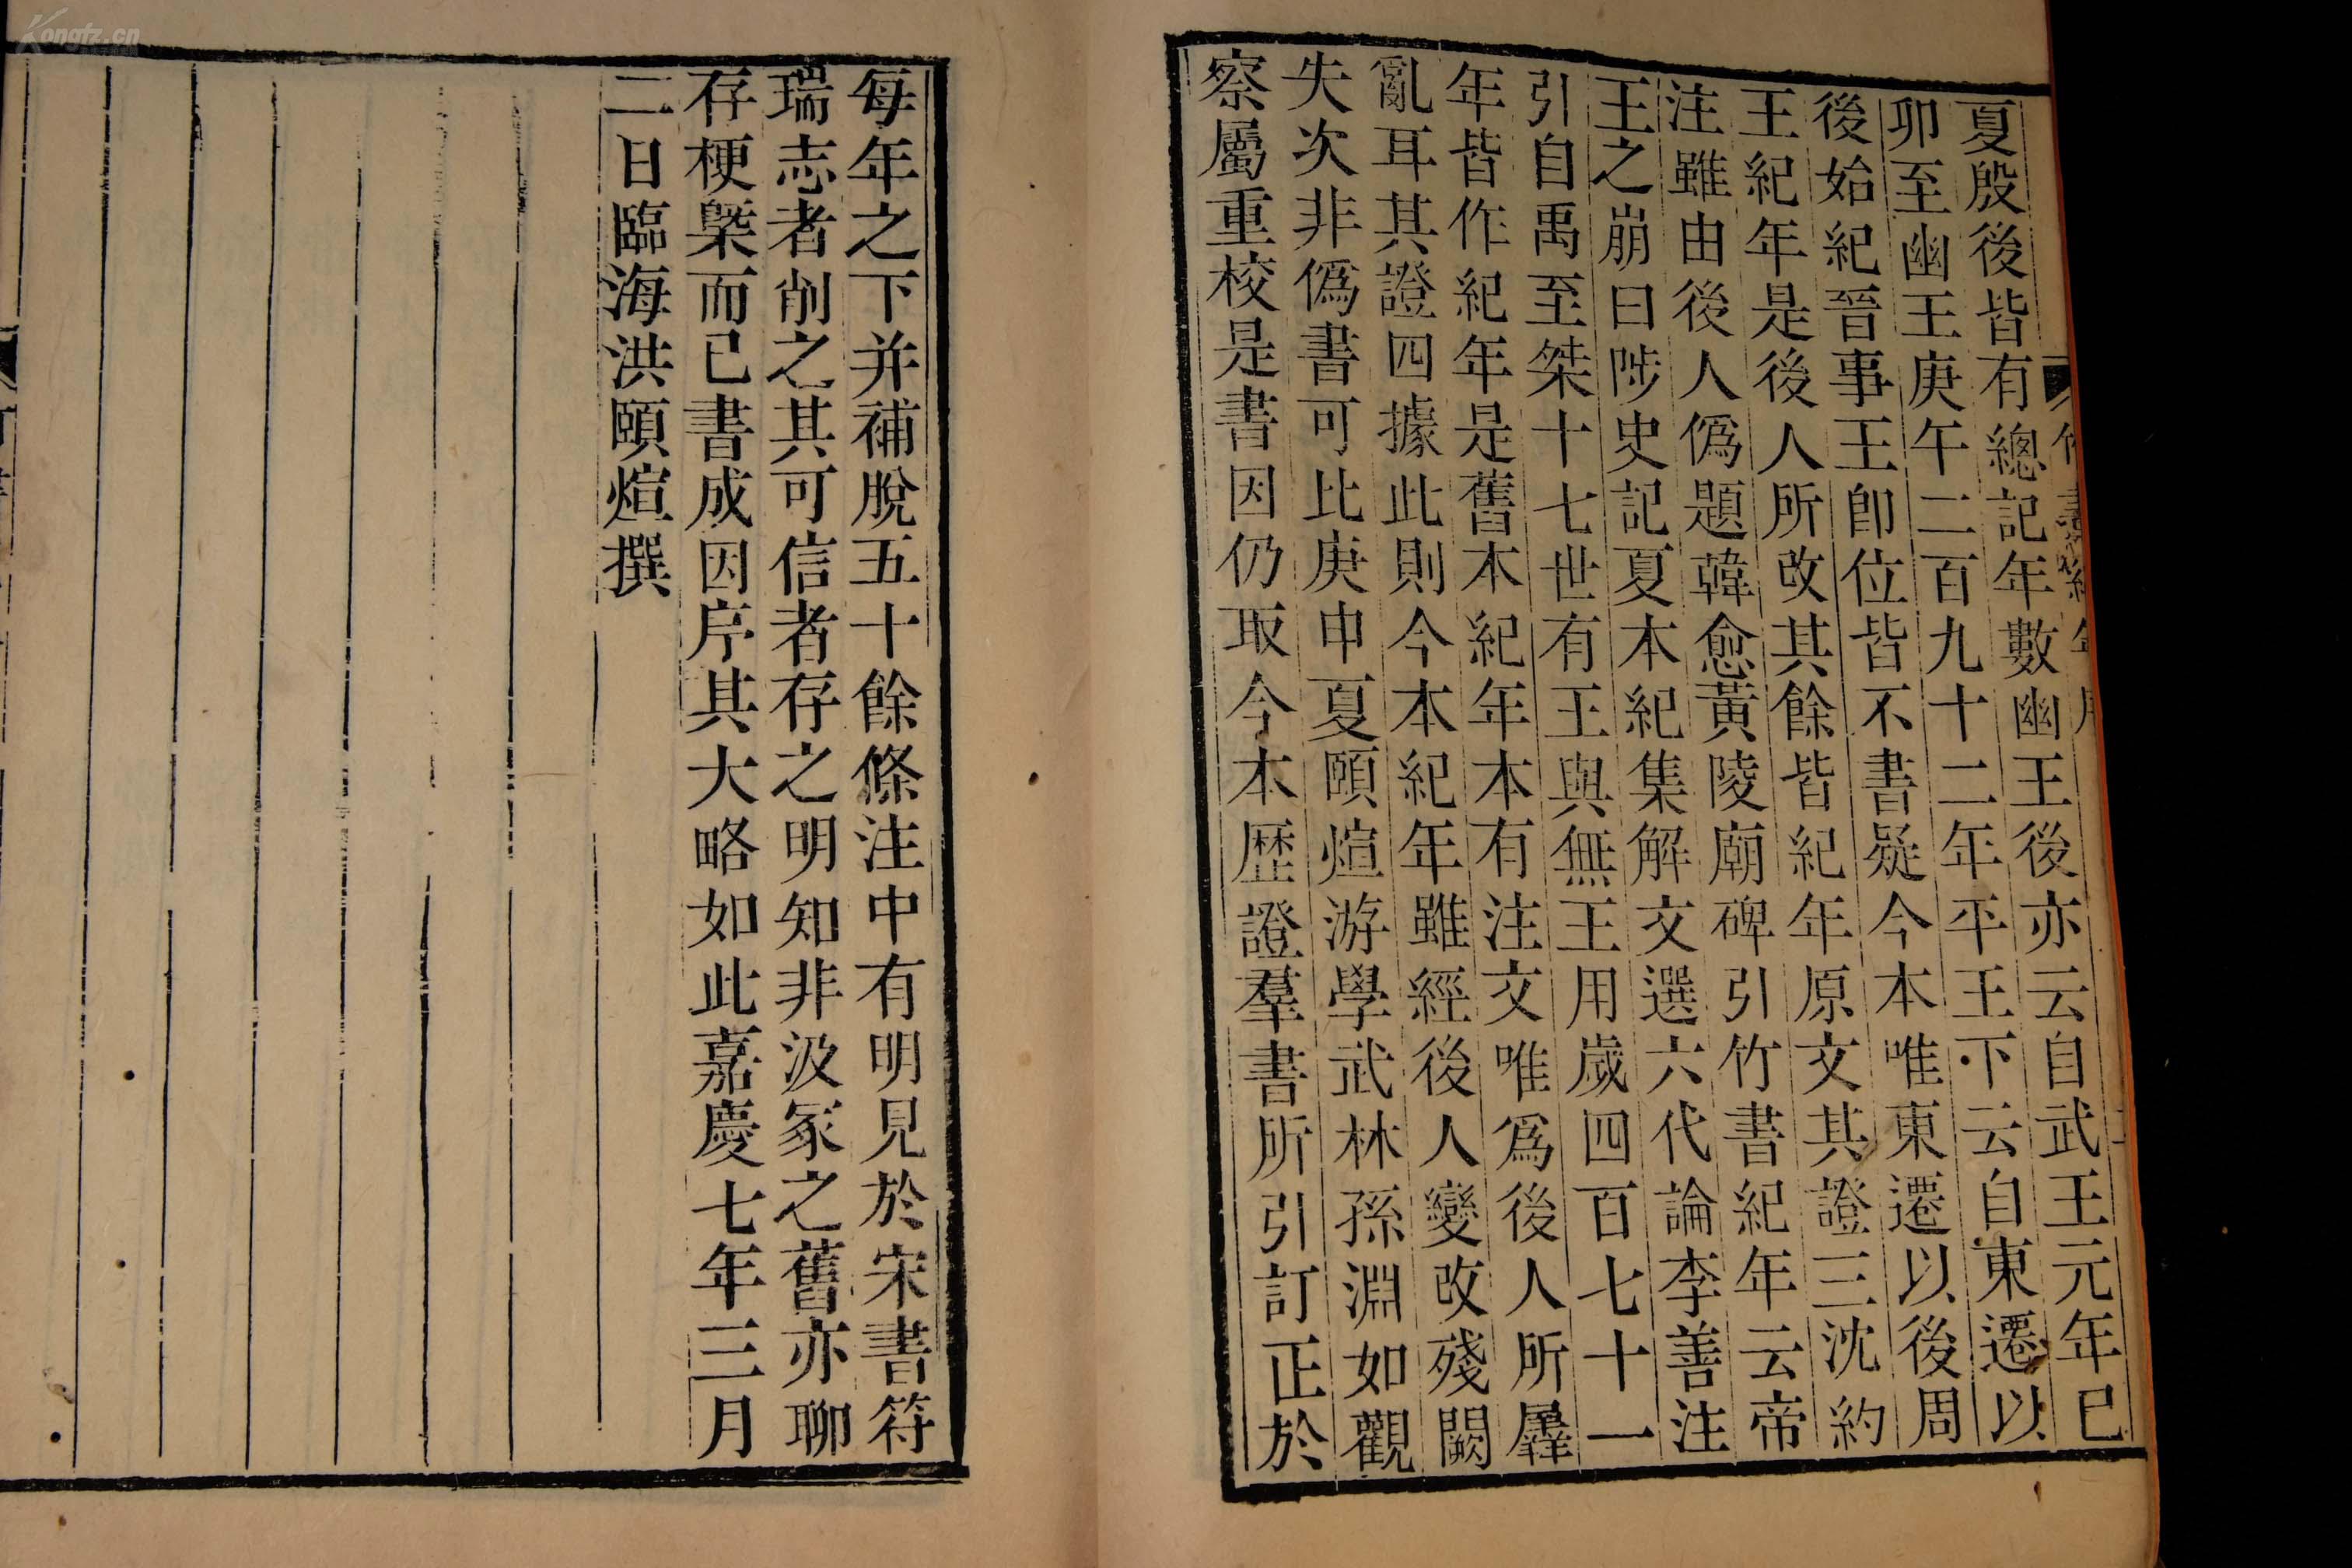 夏殷後皆有總記年數幽王後亦云自武王元年已
卯至幽王庚午二百九十二年平王下云自東遷以
後始紀晉事王卽位皆不書疑今本唯東遷以後周
王紀年是後人所改其餘皆紀年原文其證三沈約
注雖由後人僞題韓愈黃陵廟碑引竹書紀年云帝
王之崩曰陟史記夏本紀集解文選六代論李善注
引自禹至桀十七世有王與無王用歲四百七十一
年皆作紀年是舊本紀年本有注文唯爲後人所羼
亂耳其證四據此則今本紀年雖經後人變改殘闕
失次非僞書可比庚申夏頤煊游學武林孫淵如觀
察屬重校是書因仍取今本歷證羣書所引訂正於
每年之下并補脫五十餘條注中有明見於宋書符
瑞志者削之其可信者存之明知非汲冢之舊亦聊
存梗槩而已書成因序其大略如此嘉慶七年三月
二日臨海洪頤煊撰
Kongfz.cn